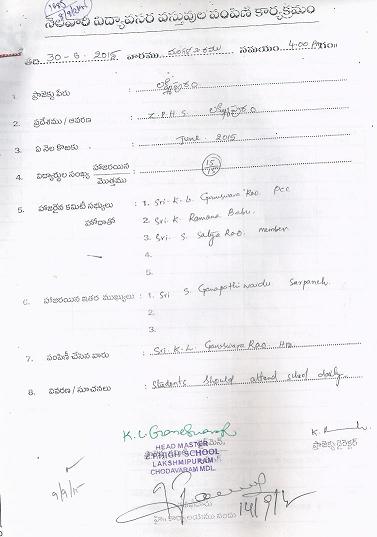 నెలవారీ విద్యావసర వస్తువుల పంపిణీ కార్యక్రమం
తేది 30-6-2015 వారము మంగళవారము సమయం 4-00 గం॥
1. ప్రాజెక్టు పేరు : లక్ష్మీపురం
2. ప్రదేశము / ఆవరణ : Z.P.H.S. లక్ష్మీపురం
3. ఏ నెల కొఱకు : June 2015
4. విద్యార్థుల సంఖ్య హాజరయిన / మొత్తము : 15/15
5. హాజరైన కమిటీ సభ్యులు : 1. Sri. K. L. Ganeswara Rao Pcc
హోదాతో 2. Sri K. Ramana Babu.
3. Sri. S. Satya Rao. member
4.
5.
6. హాజరయిన ఇతర ముఖ్యులు : 1. Sri S. Ganapathi naidu Sarpanch
2.
3.
7. పంపిణీ చేసిన వారు : Sri K.L. Ganeswara Rao Hm
8. వివరణ / సూచనలు : Students should attend school daily.
HEAD MASTER
Z.P.HIGH SCHOOL
LAKSHMIPURAM
CHODAVARAM MDL.
ప్రాజెక్టు డైరెక్టర్
9/9/15